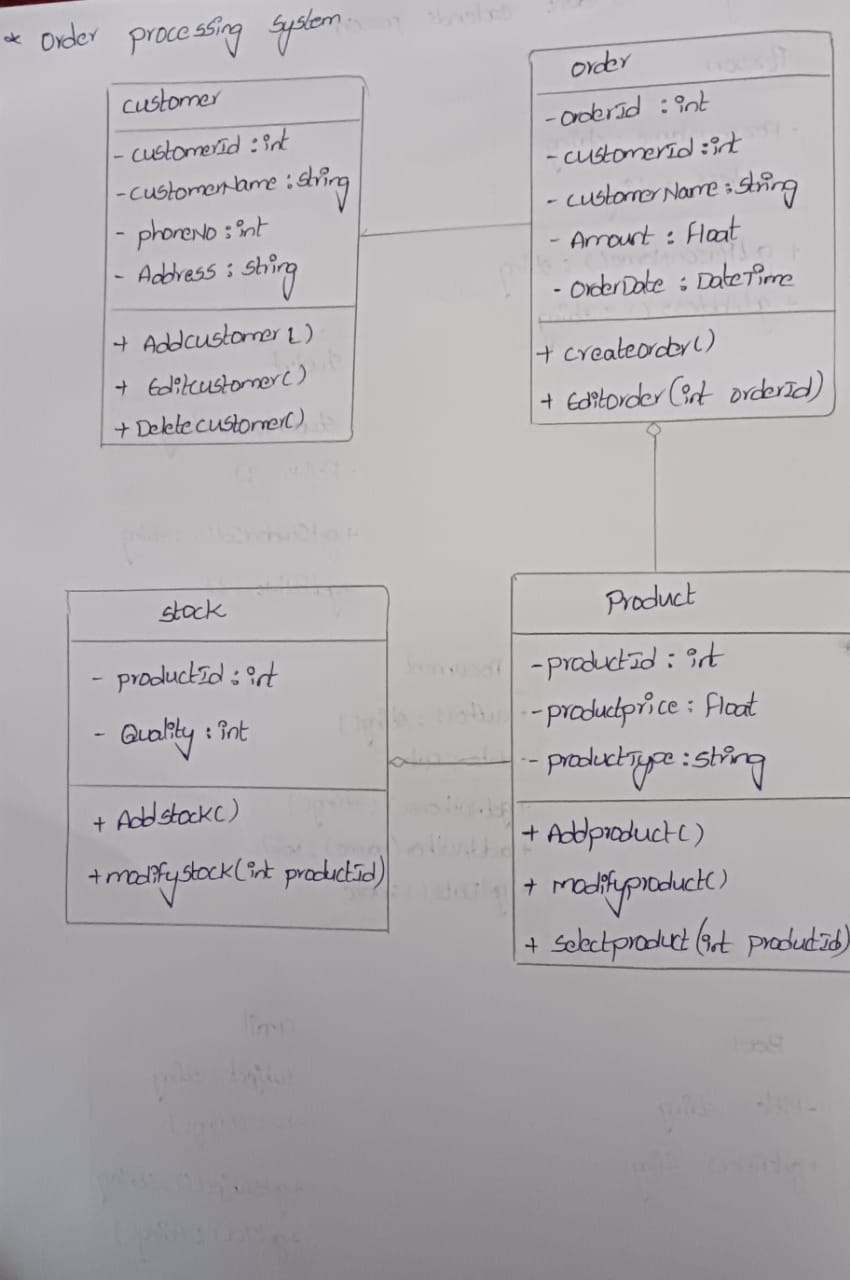 * Order processing System
customer
- customerId : int
- customerName : String
- phoneNo : int
- Address : String
+ Addcustomer()
+ Editcustomer()
+ Deletecustomer()
order
- orderId : int
- customerId : int
- customerName : String
- Amount : Float
- OrderDate : DateTime
+ createorder()
+ Editorder(int orderId)
stock
- productId : int
- Quality : int
+ Addstock()
+ modifystock(int productId)
Product
- productId : int
- productprice : Float
- productType : String
+ Addproduct()
+ modifyproduct()
+ selectproduct(int productId)